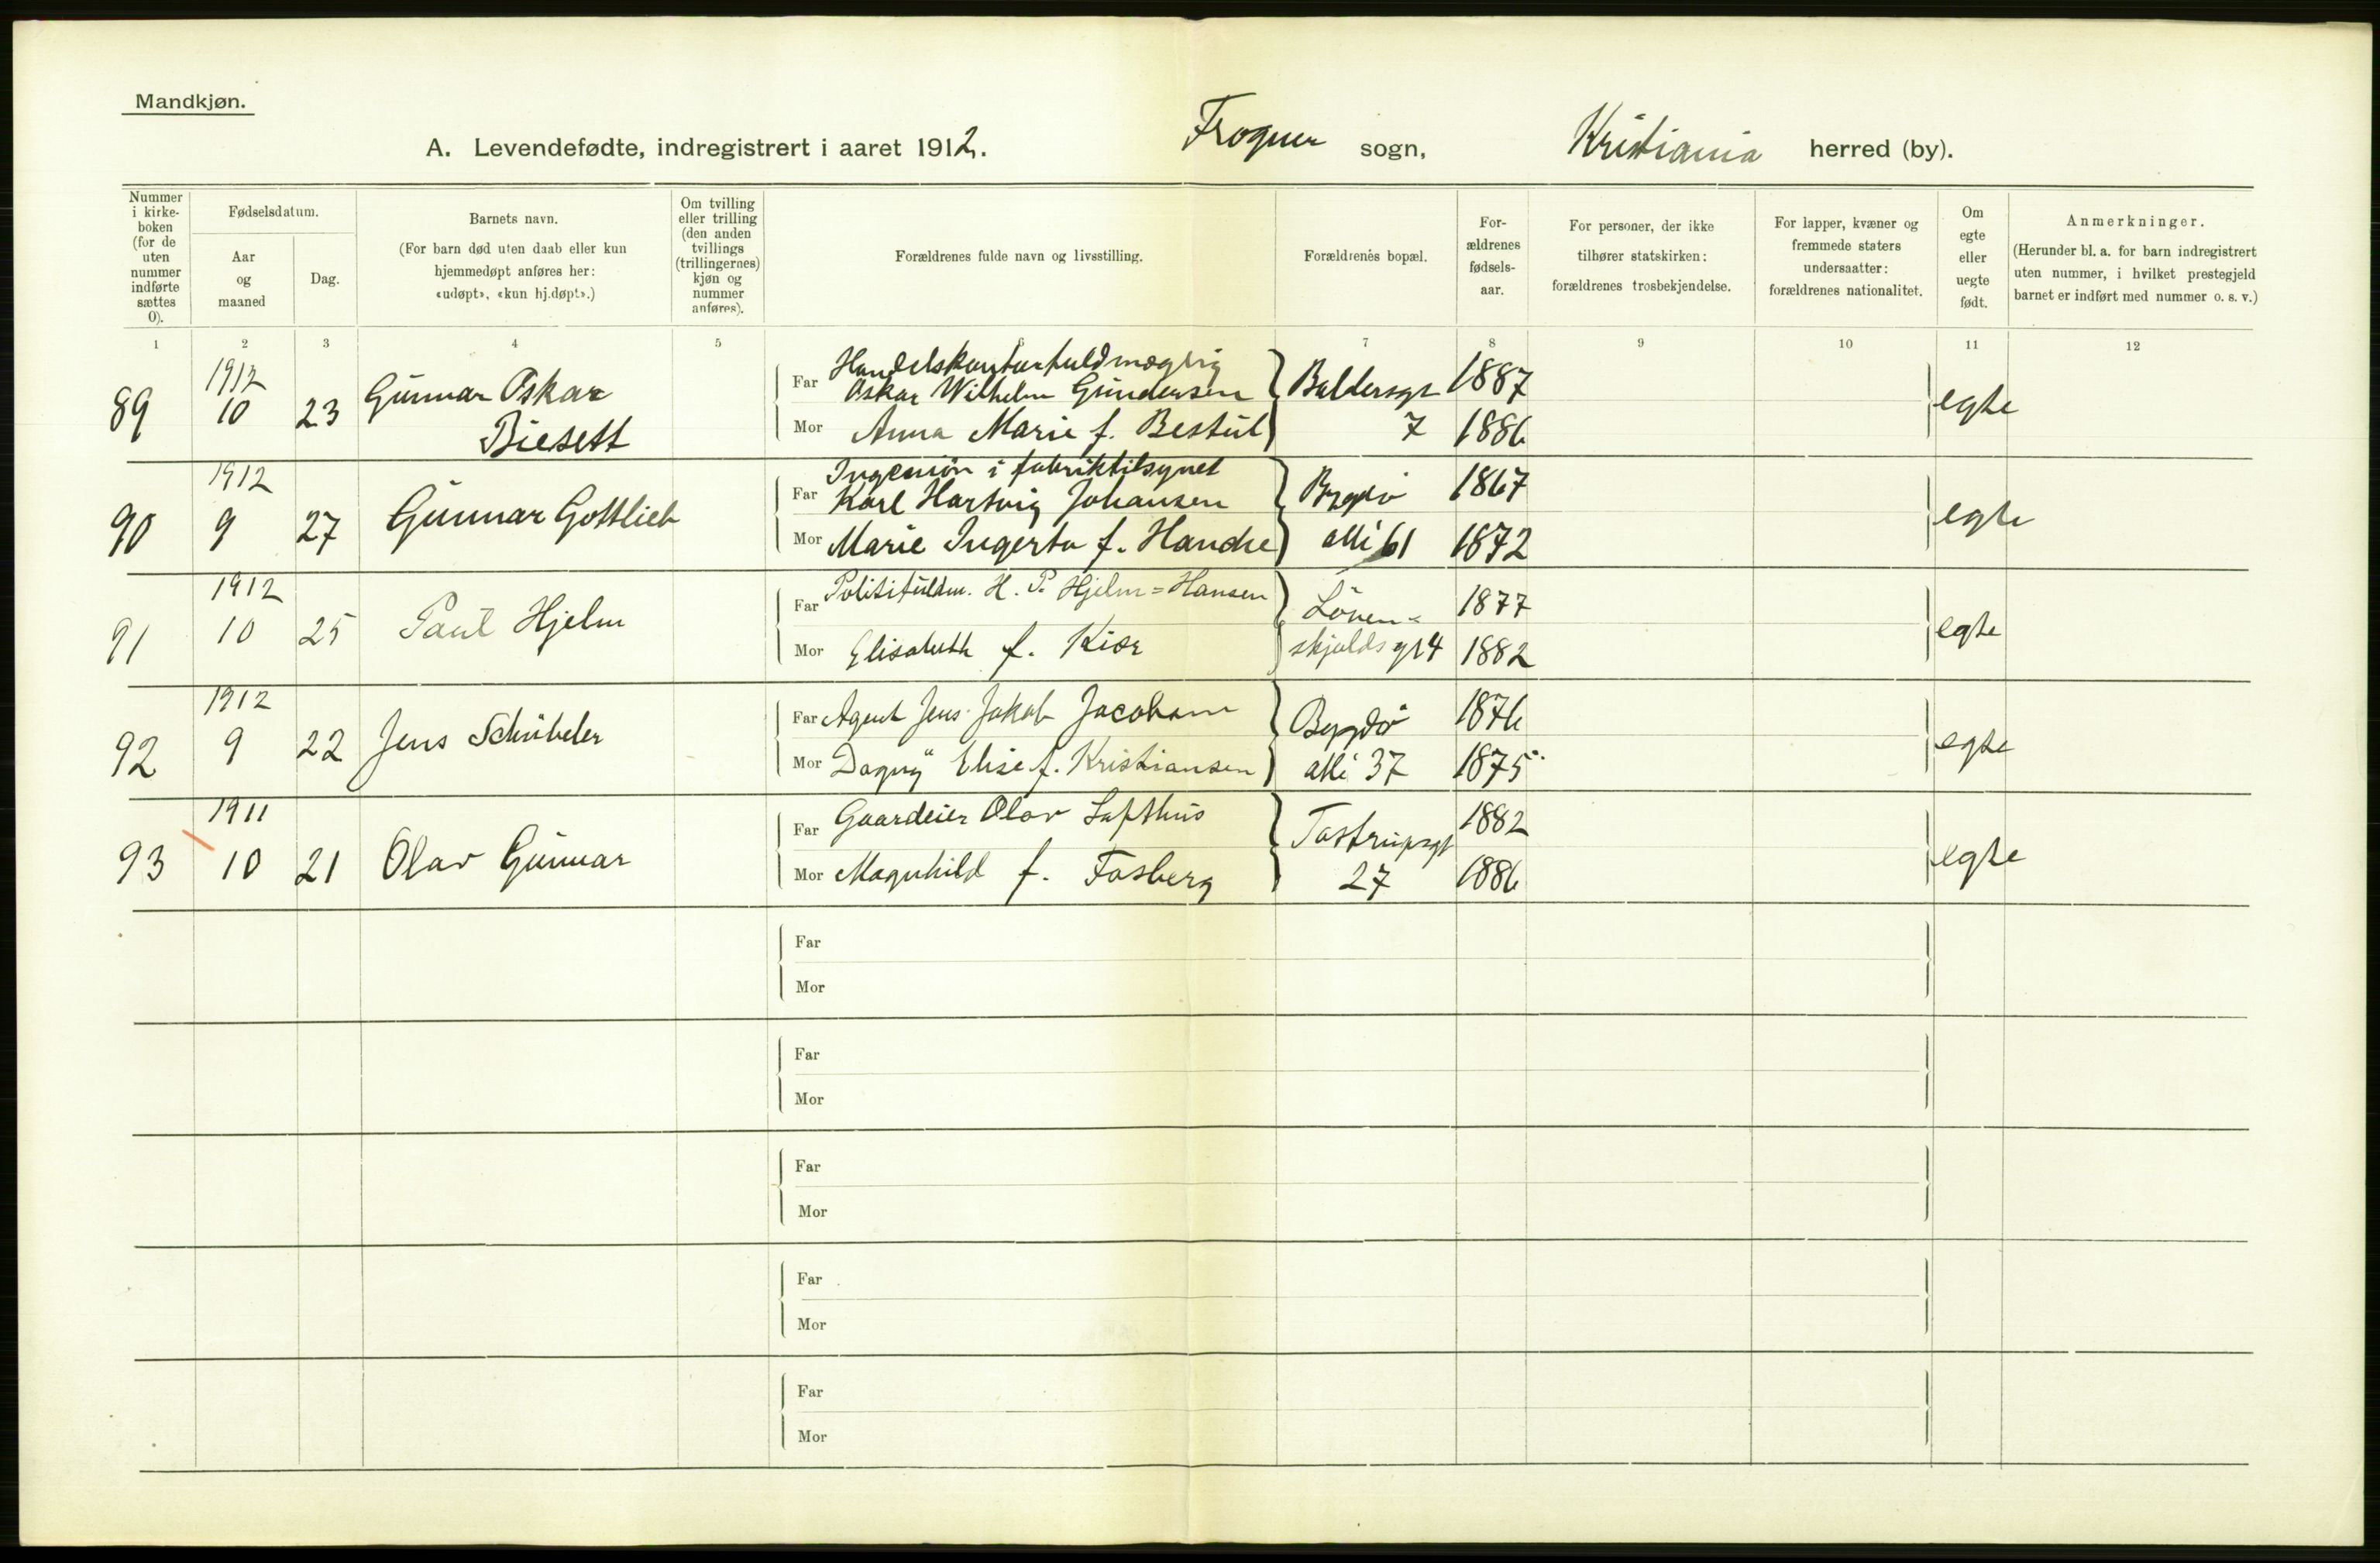 Mandkjøn.
A. Levendefødte, indregistrert i aaret 1912. Frogner sogn, Kristiania herred (by).
Nummer i kirke- boken (for de uten nummer indførte sættes 0).
Fødselsdatum.
Aar og maaned
Dag.
Barnets navn.
(For barn død uten daab eller kun
hjemmedøpt anføres her:
«udøpt», «kun hj.døpt».)
Om tvilling
eller trilling
(den anden
tvillings
(trillingernes)
kjøn og
nummer
anføres).
Forældrenes fulde navn og livsstilling.
Forældrenes bopæl.
For-
ældrenes
fødsels-
aar.
For personer, der ikke
tilhører statskirken:
forældrenes trosbekjendelse.
For lapper, kvæner og
fremmede staters
undersaatter:
forældrenes nationalitet.
Om
egte
eller
uegte
født.
Anmerkninger.
(Herunder bl. a. for barn indregistrert
uten nummer, i hvilket prestegjeld
barnet er indført med nummer o. s. v.)
1 2 3 4 5 7 8 9 10 11 12
1912 Handelskontorfuldmægtig
89 10 23 Gunnar Oskar Far Oskar Wilhelm Gundersen Baldersgt 1887 egte
Biesett Mor Anna Marie f. Bestul 7 1886
1912 Ingeniør i fabriktilsynet
90 9 27 Gunnar Gottlieb Far Karl Hartvig Johansen Bygdø 1867 egte
Mor Marie Ingerta f. Hande alle 61 1872
1912 Far Politifuldm. H. P. Hjelm=Hansen Löven- 1877
91 10 25 Paul Hjelm Mor Elisabeth f. Kiær skjoldsgt 4 1882 egte
1912 Far Agent Jens Jakob Jacobsen Bygdø 1876
92 9 22 Jens Schübeler Mor Dagny Elise f. Kristiansen alle 37 1875 egte
1911 Far Gaardeier Olav Lofthus Tostrupsgt 1882
93 10 21 Olav Gunnar Mor Magnhild f. Fosberg 27 1886 egte
Far
Mor
Far
Mor
Far
Mor
Far
Mor
Far
Mor